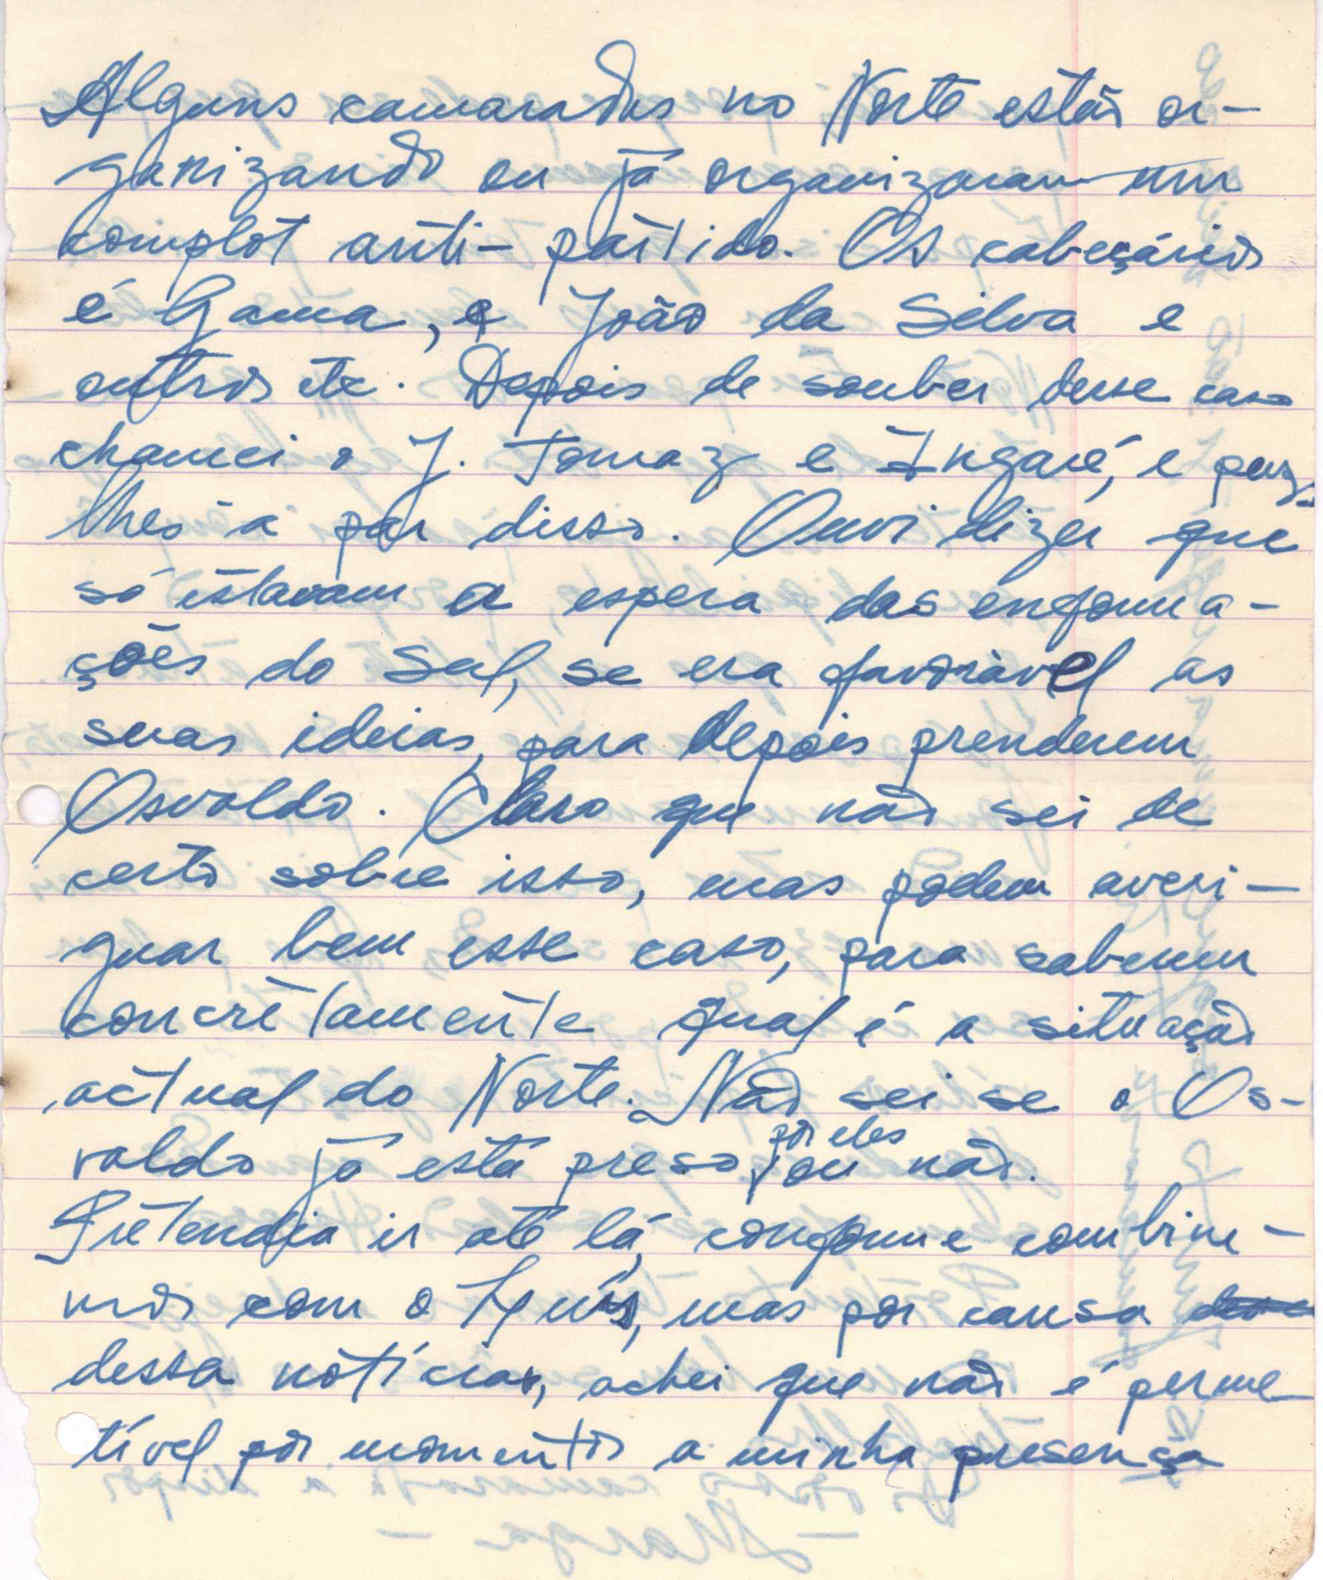 Alguns camaradas no Norte estão or-
ganizando ou já organizaram um
complot anti-partido. Os cabeçários
é Gama, e João da Silva e
outros etc. Depois de souber desse caso
chamei o J. Tomaz e Ingaré, e puz-
lhes a par disso. Ouvi dizer que
só estavam a espera das enforma-
ções do Sul, se era favorável as
suas ideias, para depois prenderem
Osvaldo. Claro que não sei de
certo sobre isso, mas podem averi-
guar bem esse caso, para saberem
concrètamente qual é a situação
actual do Norte. Não sei se o Os-
valdo já está preso por eles, ou não.
Pretendia ir até lá, conforme combine-
mos com o mas por causa
dessa notícia, achei que não é perme-
tível por momentos a minha presença